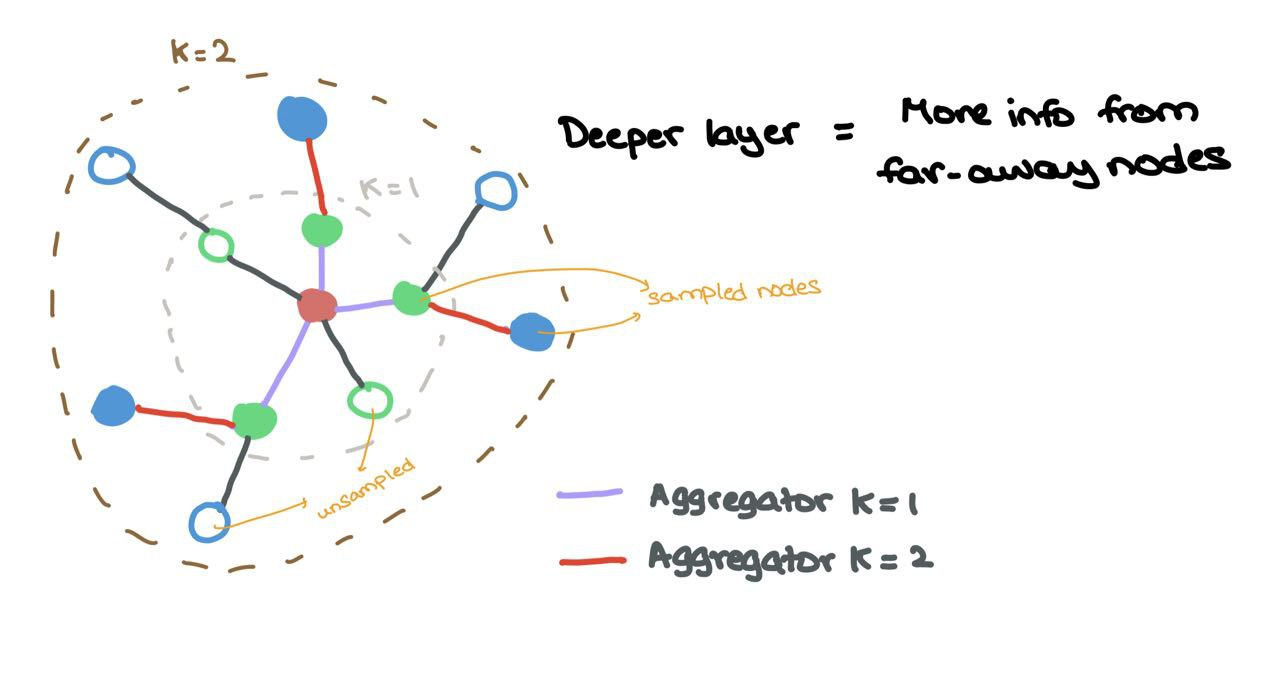 K=2
K=1
Deeper layer = More info from
far-away nodes
sampled nodes
unsampled
Aggregator K=1
Aggregator K=2